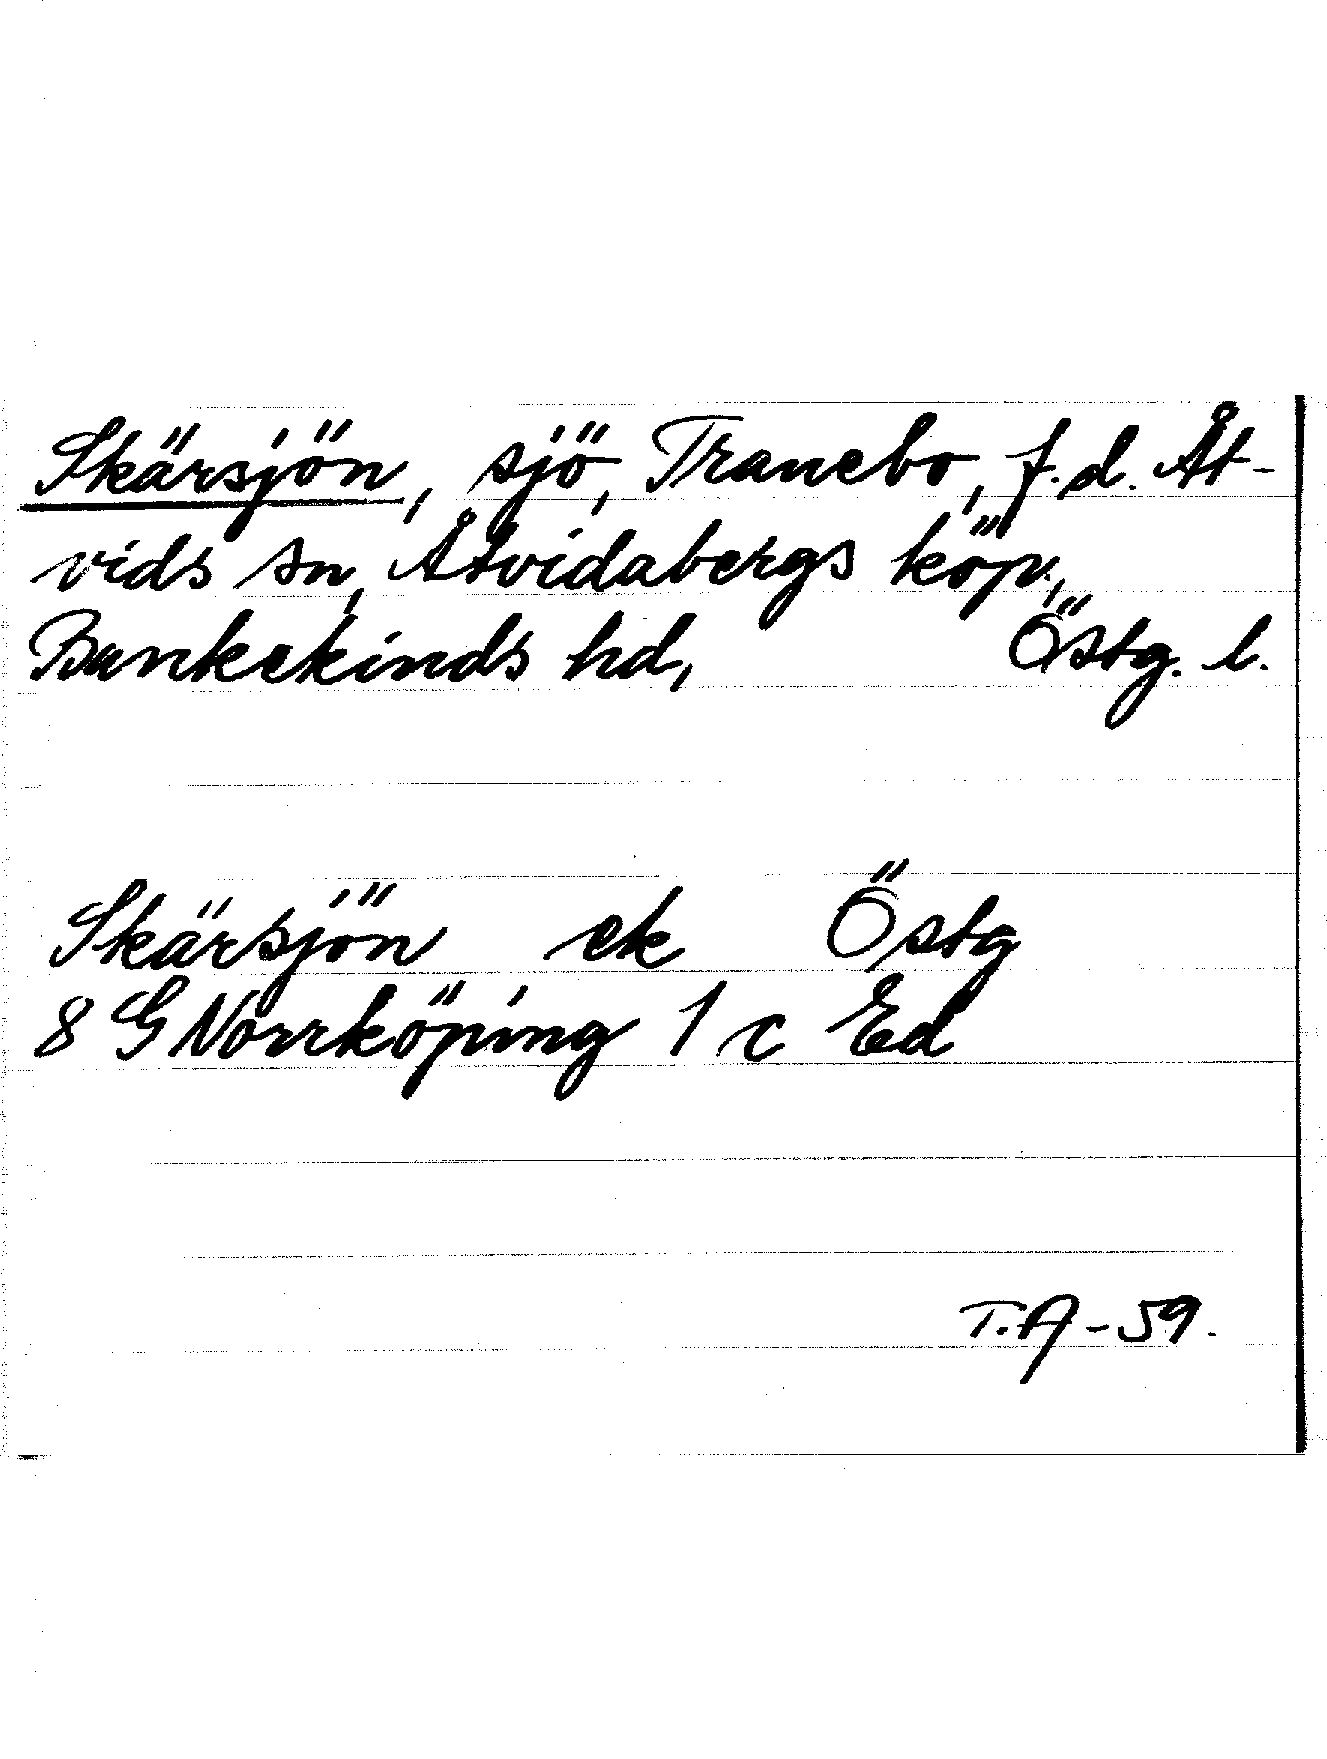 Skärsjön, sjö, Tranebo, f.d. Åt-
vids sn, Åtvidabergs köp.,
Bankekinds hd, Östg. l.
Skärsjön ek Östg
8 G Norrköping 1 c Ed
T.A-59.